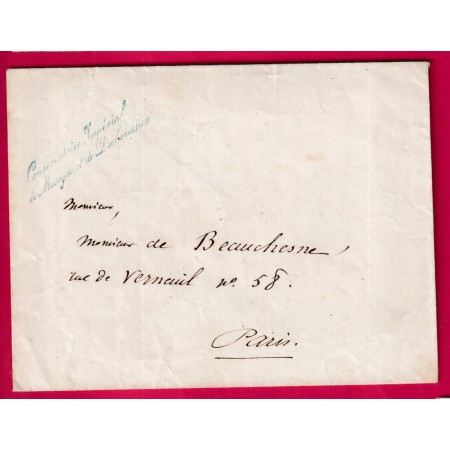 Conservatoire Impérial
de Musique et de Déclamation
Monsieur,
Monsieur de Beauchesne,
rue de Verneuil nº. 58.
Paris.